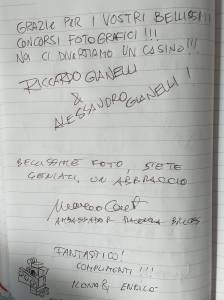 GRAZIE PER I VOSTRI BELLISSIMI
CONCORSI FOTOGRAFICI !!!
NOI CI DIVERTIAMO UN CASINO!!!
RICCARDO GIANELLI
&
ALESSANDRO GIANELLI !
BELLISSIME FOTO, SIETE
GENIALI, UN ABBRACCIO
AMBASSADOR
FANTASTICO!
COMPLIMENTI !!!
& ENRICO